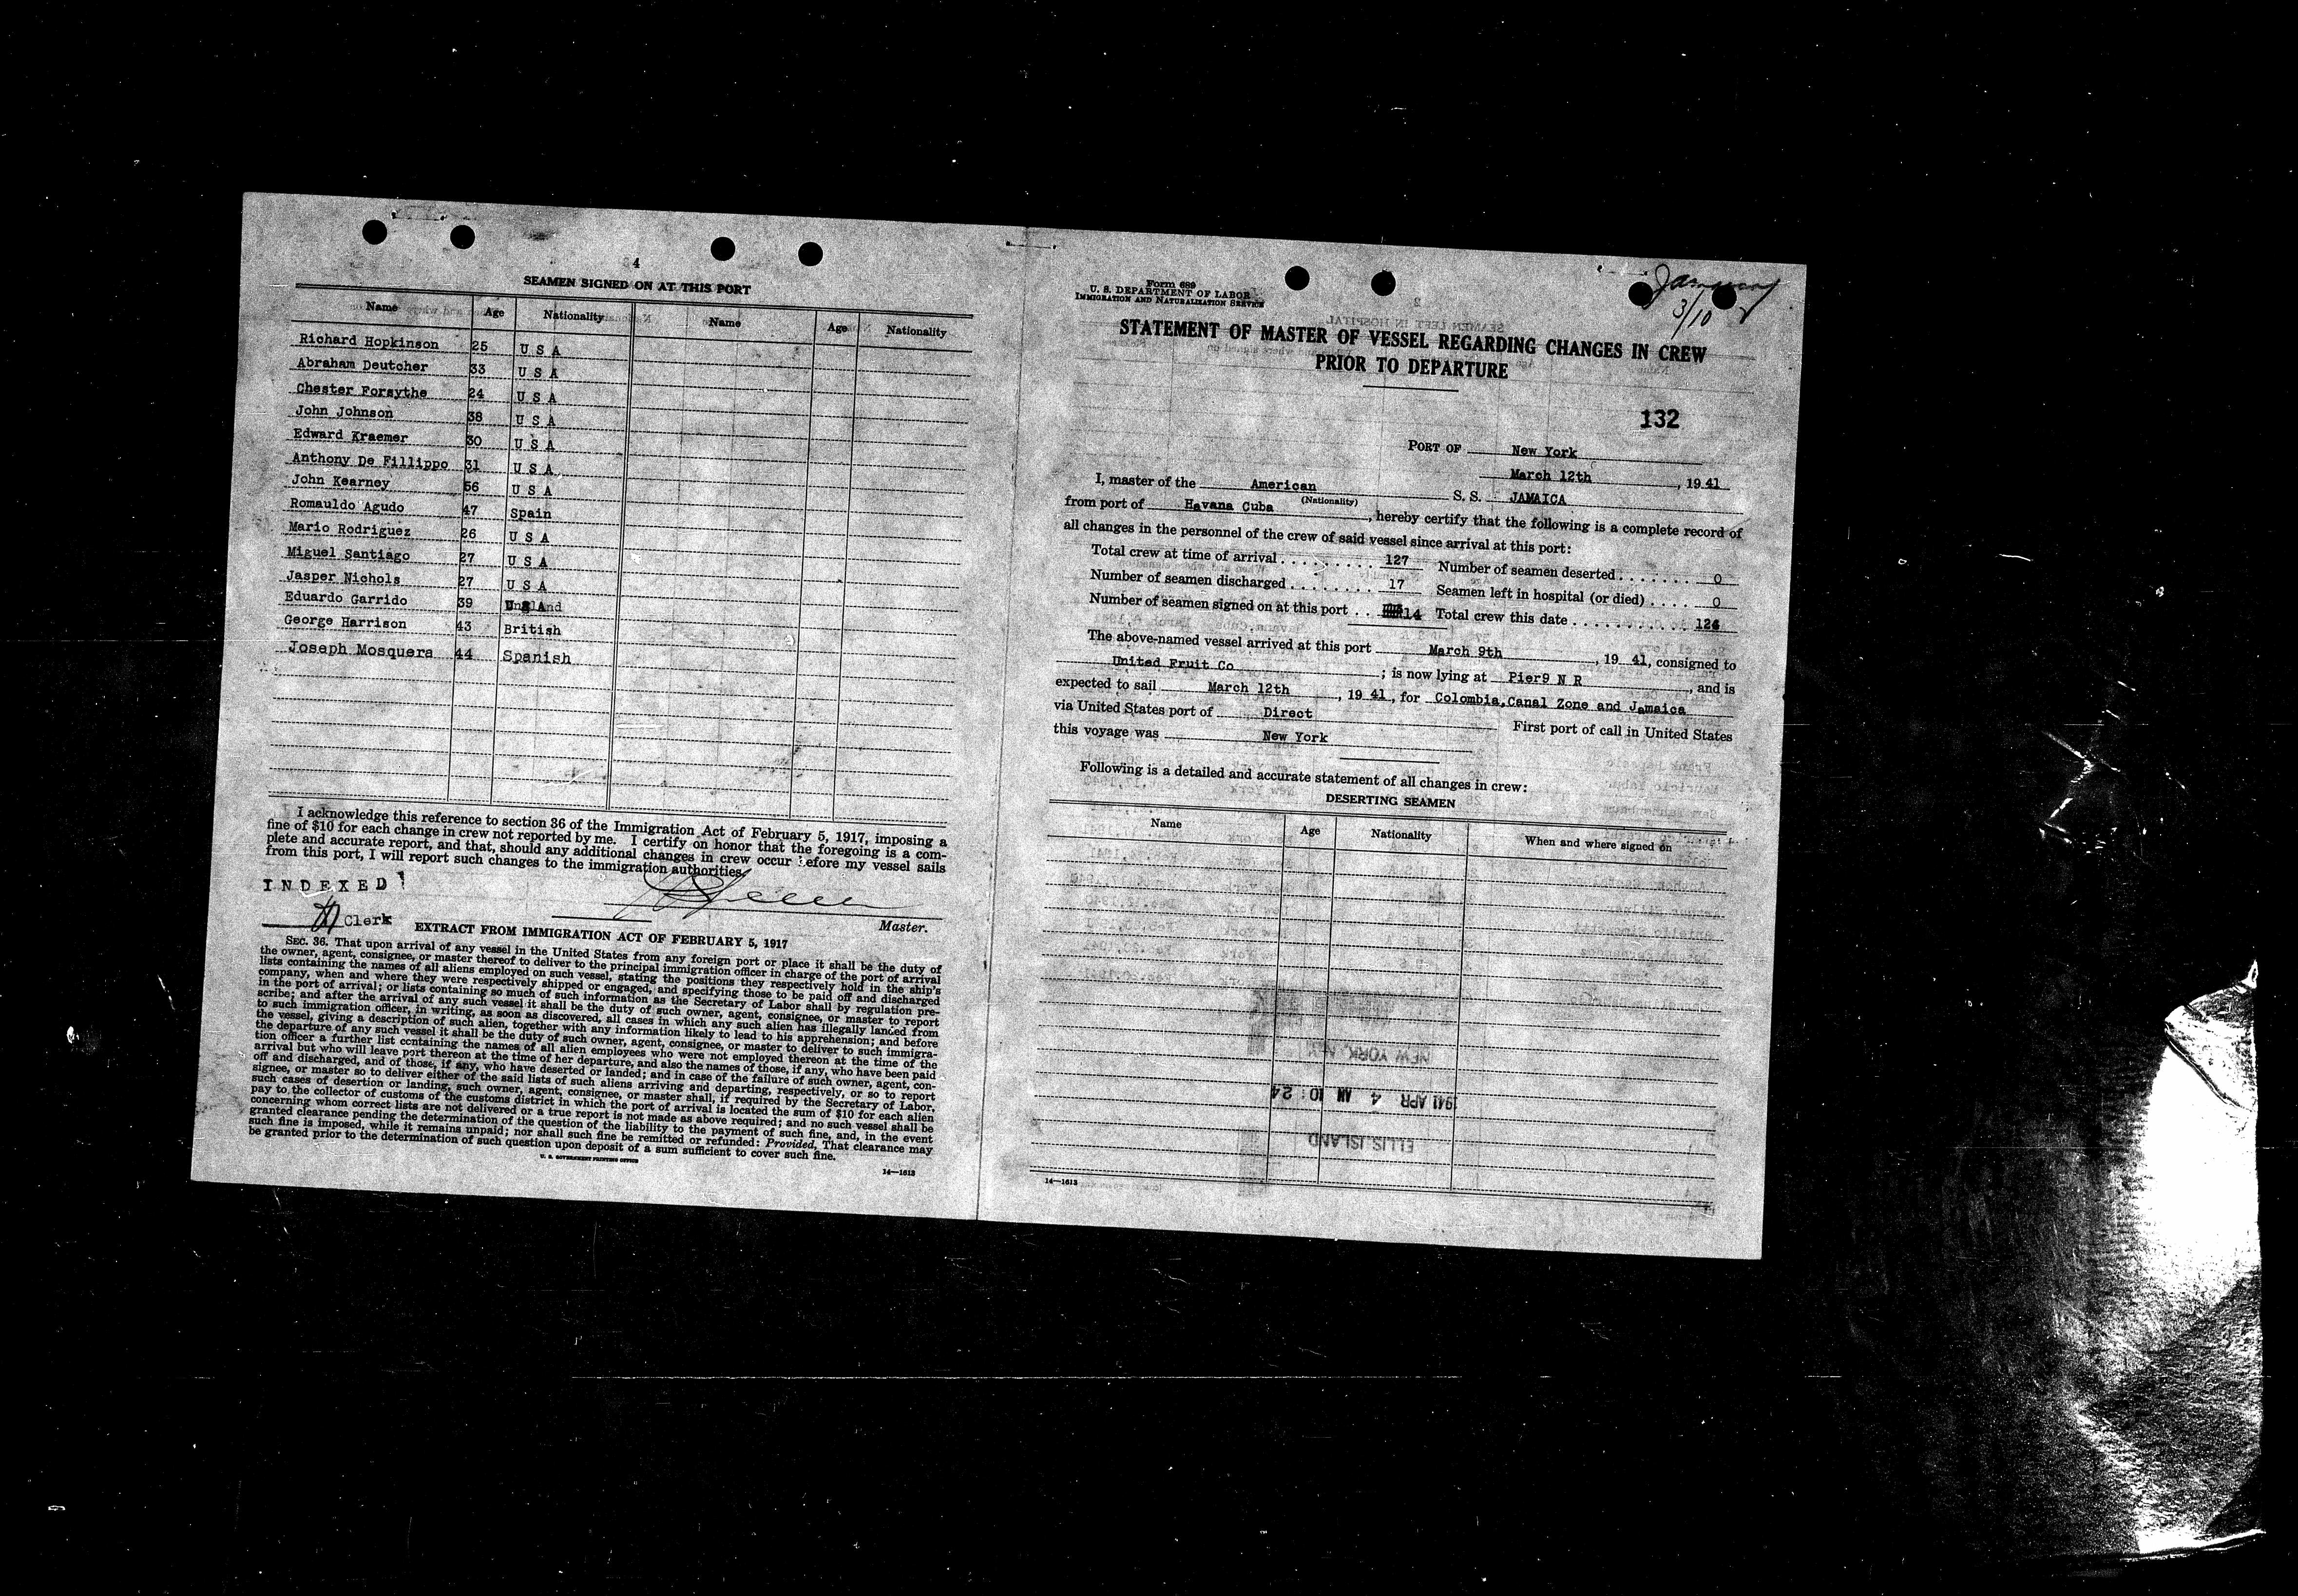 4
SEAMEN SIGNED ON AT THIS PORT
Name Age Nationality Name Age Nationality
Richard Hopkinson 25 U S A
Abraham Deutcher 33 U S A
Chester Forsythe 24 U S A
John Johnson 38 U S A
Edward Kraemer 30 U S A
Anthony De Fillippo 31 U S A
John Kearney 56 U S A
Romauldo Agudo 47 Spain
Mario Rodriguez 26 U S A
Miguel Santiago 27 U S A
Jasper Nichols 27 U S A
Eduardo Garrido 39
George Harrison 43 British
Joseph Mosquera 44 Spanish
I acknowledge this reference to section 36 of the Immigration Act of February 5, 1917, imposing a
fine of $10 for each change in crew not reported by me. I certify on honor that the foregoing is a com-
plete and accurate report, and that, should any additional changes in crew occur before my vessel sails
from this port, I will report such changes to the immigration authorities.
INDEXED
Clerk
Master.
EXTRACT FROM IMMIGRATION ACT OF FEBRUARY 5, 1917
SEC. 36. That upon arrival of any vessel in the United States from any foreign port or place it shall be the duty of
the owner, agent, consignee, or master thereof to deliver to the principal immigration officer in charge of the port of arrival
lists containing the names of all aliens employed on such vessel, stating the positions they respectively hold in the ship's
company, when and where they were respectively shipped or engaged, and specifying those to be paid off and discharged
in the port of arrival; or lists containing so much of such information as the Secretary of Labor shall by regulation pre-
scribe; and after the arrival of any such vessel it shall be the duty of such owner, agent, consignee, or master to report
to such immigration officer, in writing, as soon as discovered, all cases in which any such alien has illegally landed from
the vessel, giving a description of such alien, together with any information likely to lead to his apprehension; and before
the departure of any such vessel it shall be the duty of such owner, agent, consignee, or master to deliver to such immigra-
tion officer a further list containing the names of all alien employees who were not employed thereon at the time of the
arrival but who will leave port thereon at the time of her departure, and also the names of those, if any, who have been paid
off and discharged, and of those, if any, who have deserted or landed; and in case of the failure of such owner, agent, con-
signee, or master so to deliver either of the said lists of such aliens arriving and departing, respectively, or so to report
such cases of desertion or landing, such owner, agent, consignee, or master shall, if required by the Secretary of Labor,
pay to the collector of customs of the customs district in which the port of arrival is located the sum of $10 for each alien
concerning whom correct lists are not delivered or a true report is not made as above required; and no such vessel shall be
granted clearance pending the determination of the question of the liability to the payment of such fine, and, in the event
such fine is imposed, while it remains unpaid; nor shall such fine be remitted or refunded: Provided, That clearance may
be granted prior to the determination of such question upon deposit of a sum sufficient to cover such fine.
U. S. GOVERNMENT PRINTING OFFICE
14—1613
Form 689
U. S. DEPARTMENT OF LABOR
IMMIGRATION AND NATURALIZATION SERVICE
3/10
STATEMENT OF MASTER OF VESSEL REGARDING CHANGES IN CREW
PRIOR TO DEPARTURE
132
PORT OF New York
March 12th, 19 41
I, master of the American S. S. JAMAICA
(Nationality)
from port of Havana Cuba, hereby certify that the following is a complete record of
all changes in the personnel of the crew of said vessel since arrival at this port:
Total crew at time of arrival 127 Number of seamen deserted 0
Number of seamen discharged 17 Seamen left in hospital (or died) 0
Number of seamen signed on at this port 14 Total crew this date 124
The above-named vessel arrived at this port March 9th, 19 41, consigned to
United Fruit Co; is now lying at Pier9 N R, and is
expected to sail March 12th, 19 41, for Colombia, Canal Zone and Jamaica
via United States port of Direct First port of call in United States
this voyage was New York
Following is a detailed and accurate statement of all changes in crew:
DESERTING SEAMEN
Name Age Nationality When and where signed on
NEW YORK, N.Y.
1941 APR 4 AM 10:24
ELLIS ISLAND
14—1613